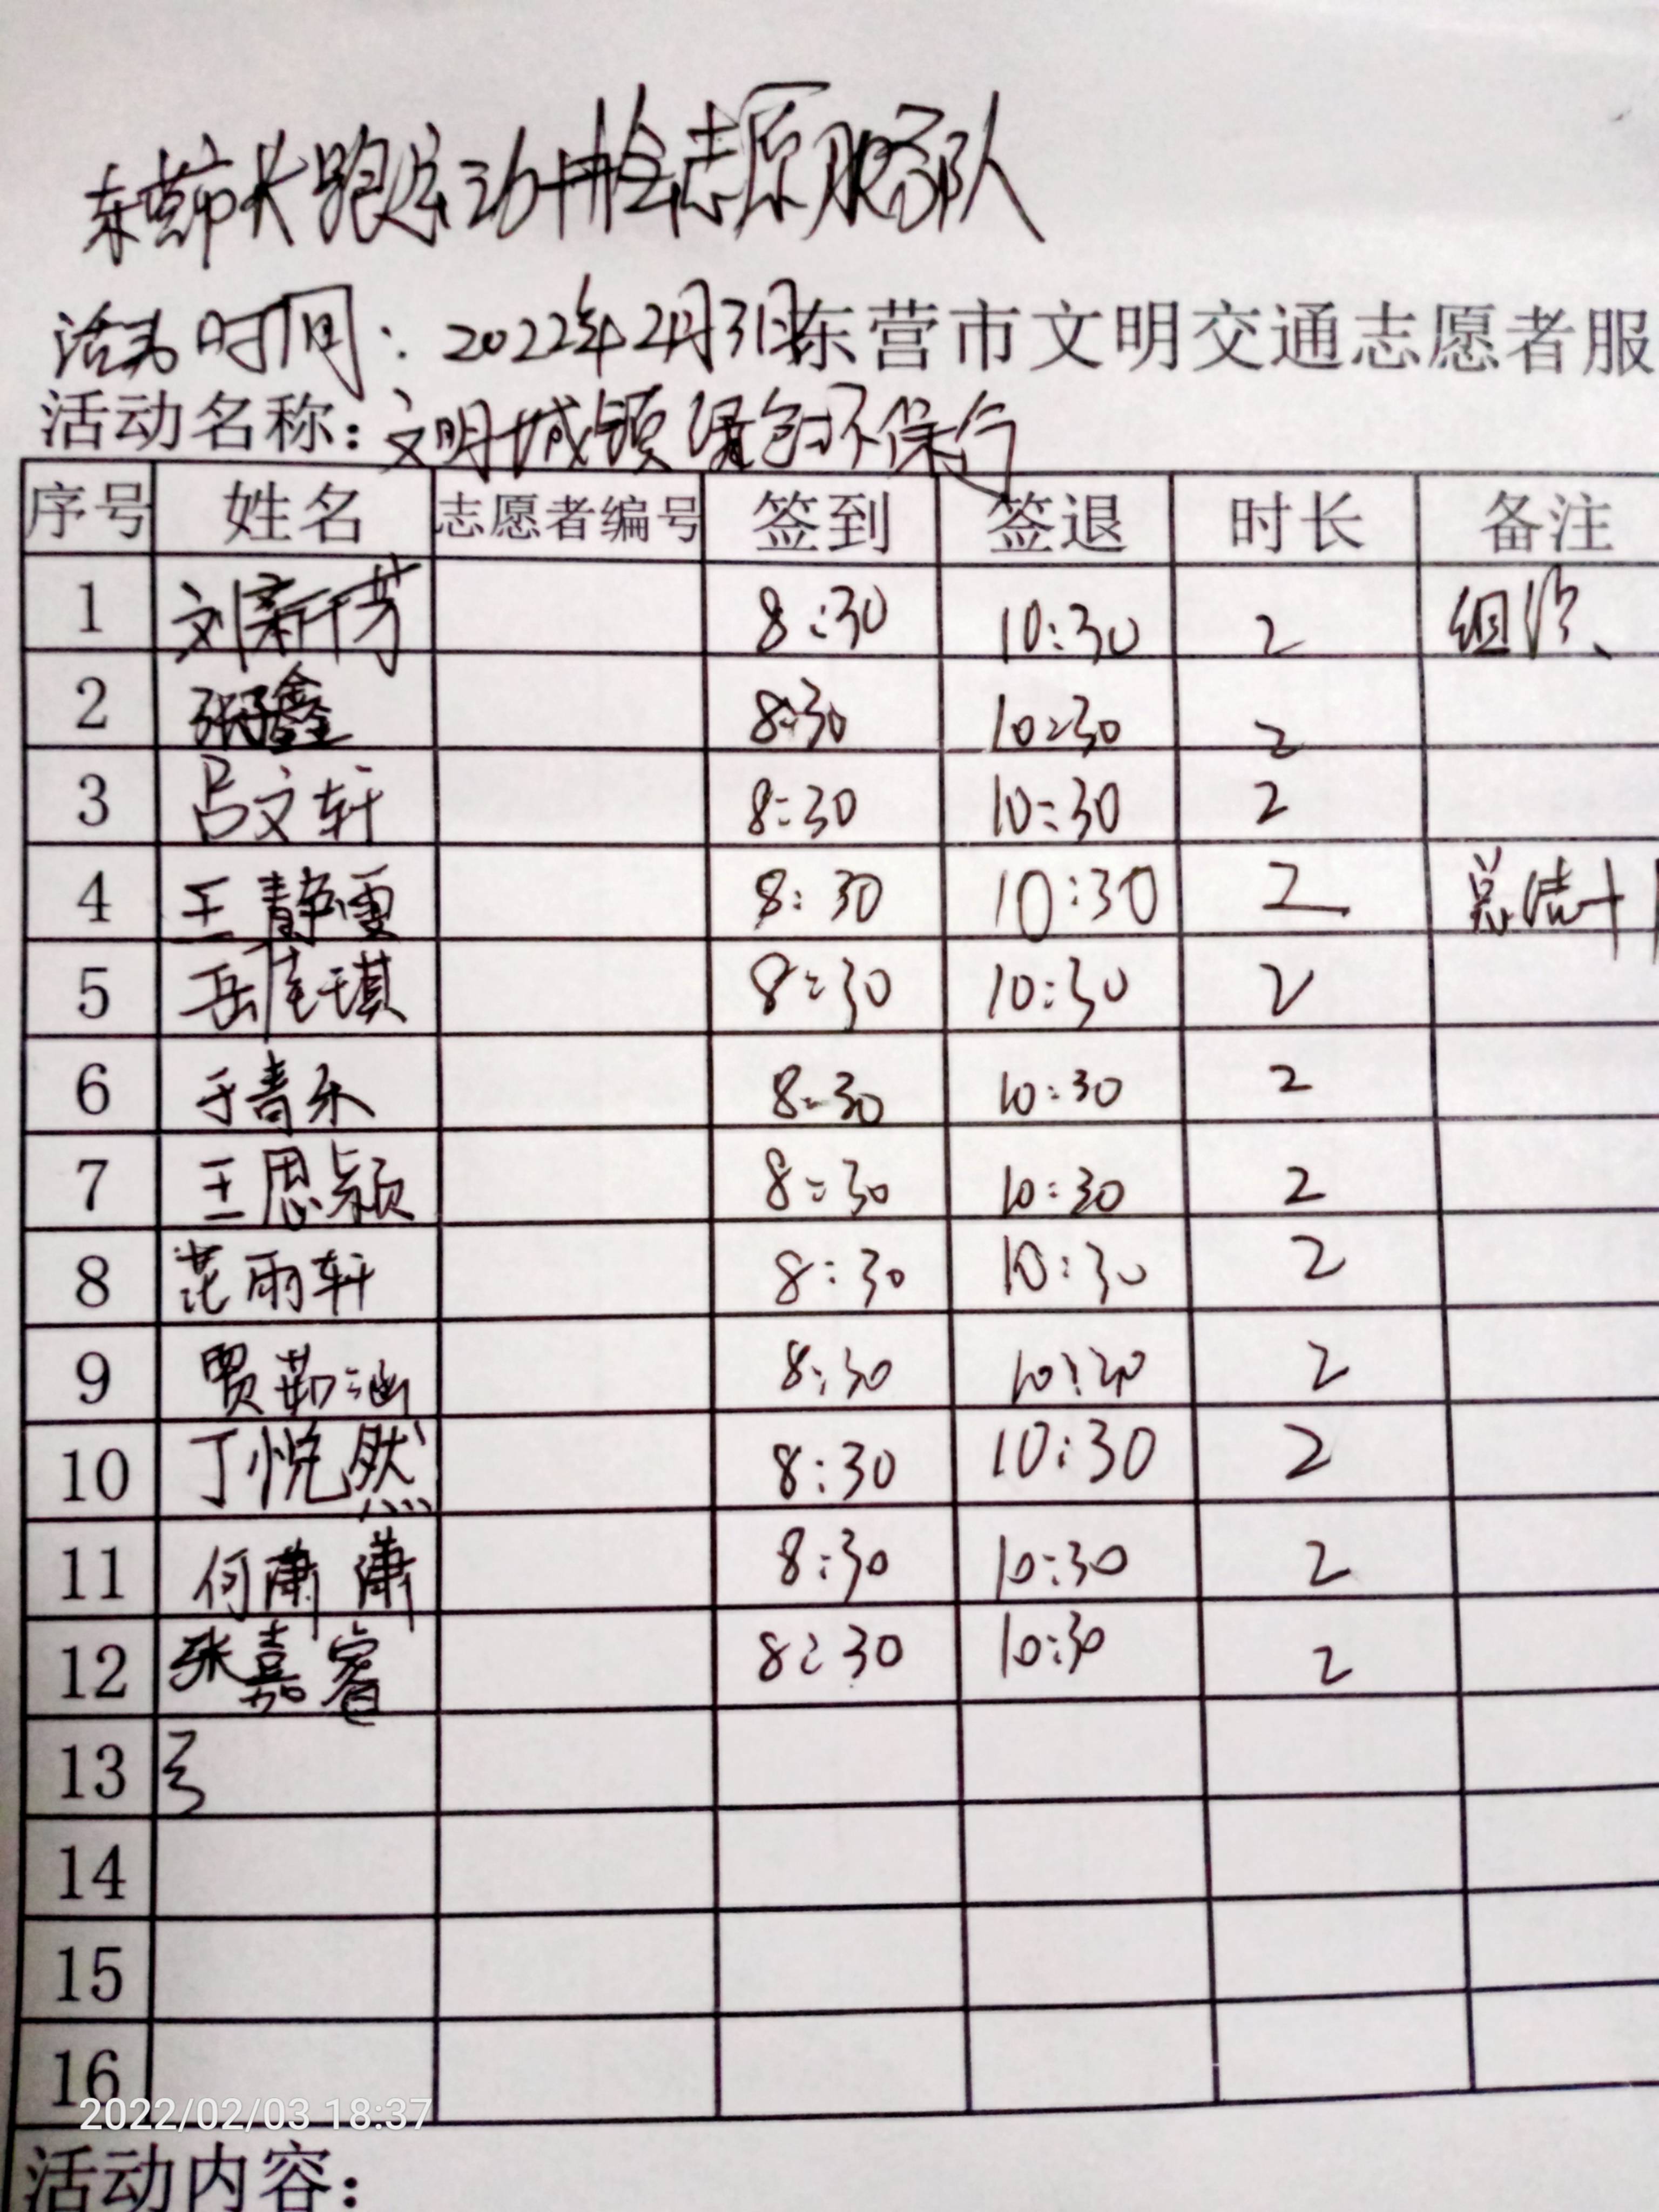 东营市长跑运动协会志愿服务队
活动时间：2022年2月3日东营市文明交通志愿者服
活动名称：文明城镇 绿色环保行
序号 姓名 志愿者编号 签到 签退 时长 备注
1 刘新芳 8:30 10:30 2 组织、
2 张鑫 8:30 10:30 2
3 吕文轩 8:30 10:30 2
4 王静雯 8:30 10:30 2 总结
5 岳 琪 8:30 10:30 2
6 于青禾 8:30 10:30 2
7 王思颖 8:30 10:30 2
8 范雨轩 8:30 10:30 2
9 贾茹涵 8:30 10:30 2
10 丁悦然 8:30 10:30 2
11 何潇潇 8:30 10:30 2
12 张嘉睿 8:30 10:30 2
13
14
15
16
2022/02/03 18:37
活动内容：